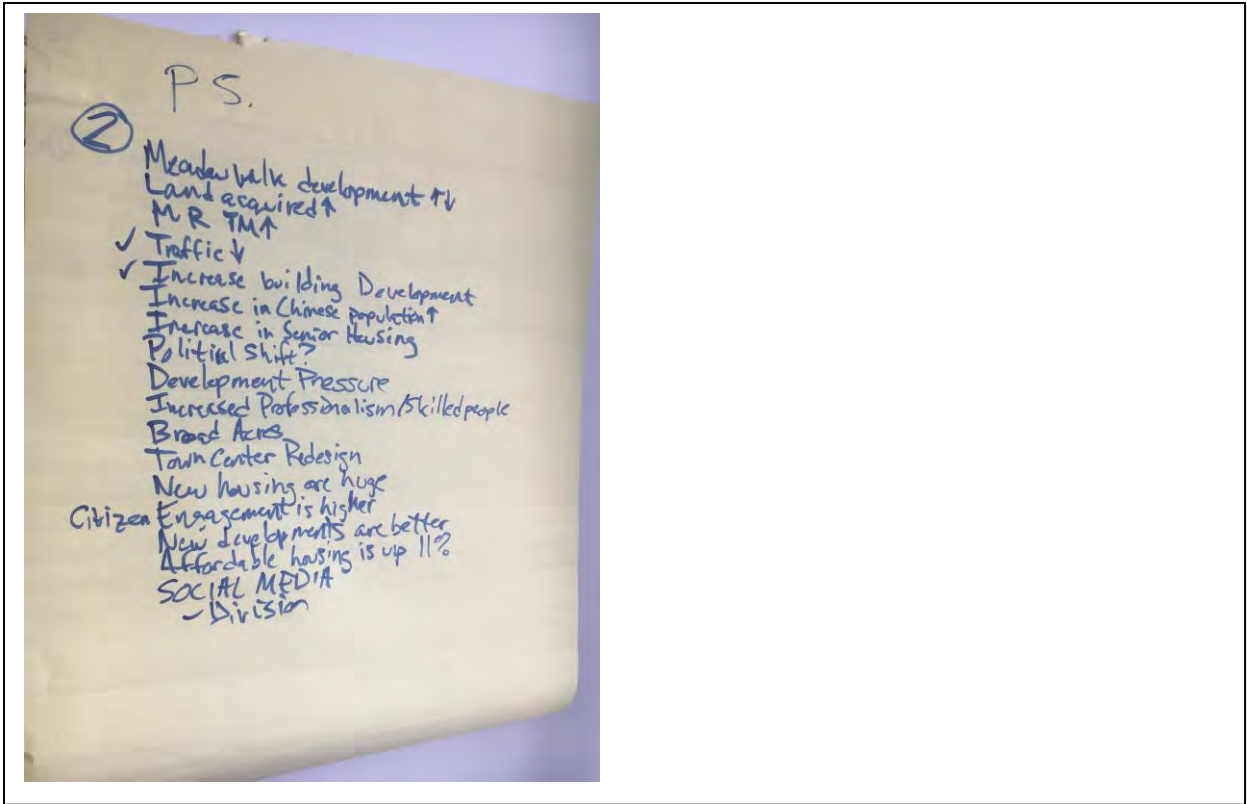 P S.
②
Meadowwalk development ↑↓
Land acquired ↑
MR TM ↑
✓ Traffic ↓
✓ Increase building Development
Increase in Chinese population ↑
Increase in Senior Housing
Political Shift?
Development Pressure
Increased Professionalism/Skilled people
Broad Acres
Town Center Redesign
New housing are huge
Citizen Engagement is higher
New developments are better
Affordable housing is up 11?
SOCIAL MEDIA
- Division